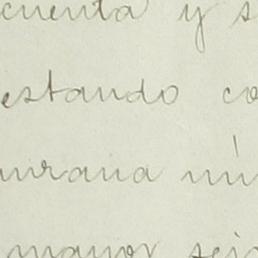 cuenta y s
estando co
urana
mayor seis